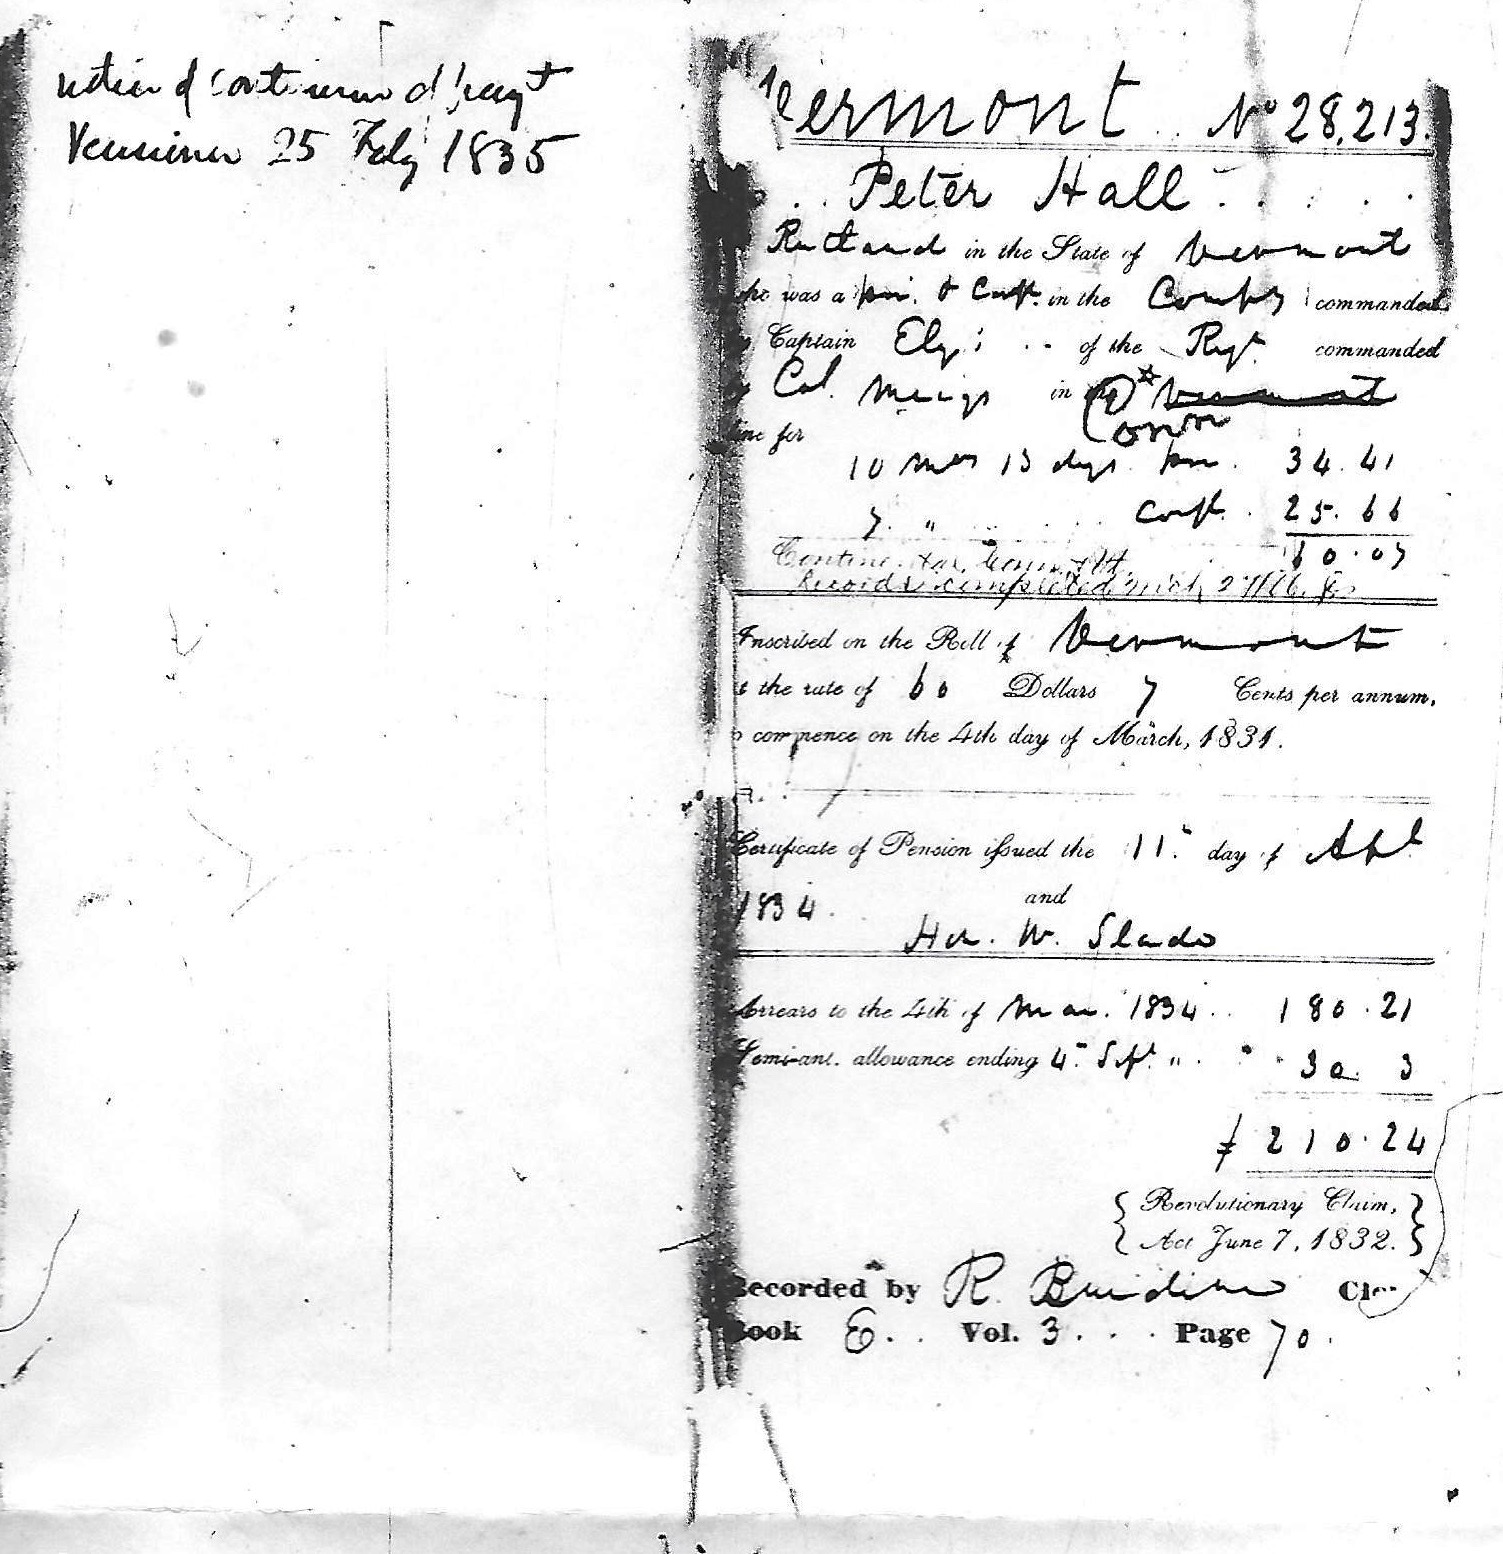 25 Feby 1835
Vermont No 28,213.
Peter Hall
Rutland in the State of Vermont
was a pri. & Corpl. in the Compy commanded
Captain Ely; of the Regt commanded
Col. Meigs in Vermont
Conn
for
10 mos 13 dys. pri. 34.41
7 " Corpl. 25.66
60.07
Records completed
Inscribed on the Roll of Vermont
the rate of 60 Dollars 7 Cents per annum,
commence on the 4th day of March, 1831.
Certificate of Pension issued the 11th day of Apl
1834. and
Hon. W. Slade
Arrears to the 4th of Mar. 1834 180.21
Semi-anl. allowance ending 4th Sept " 30. 3
$ 210.24
{ Revolutionary Claim, }
{ Act June 7, 1832. }
Recorded by R.
Book E. Vol. 3 Page 70.